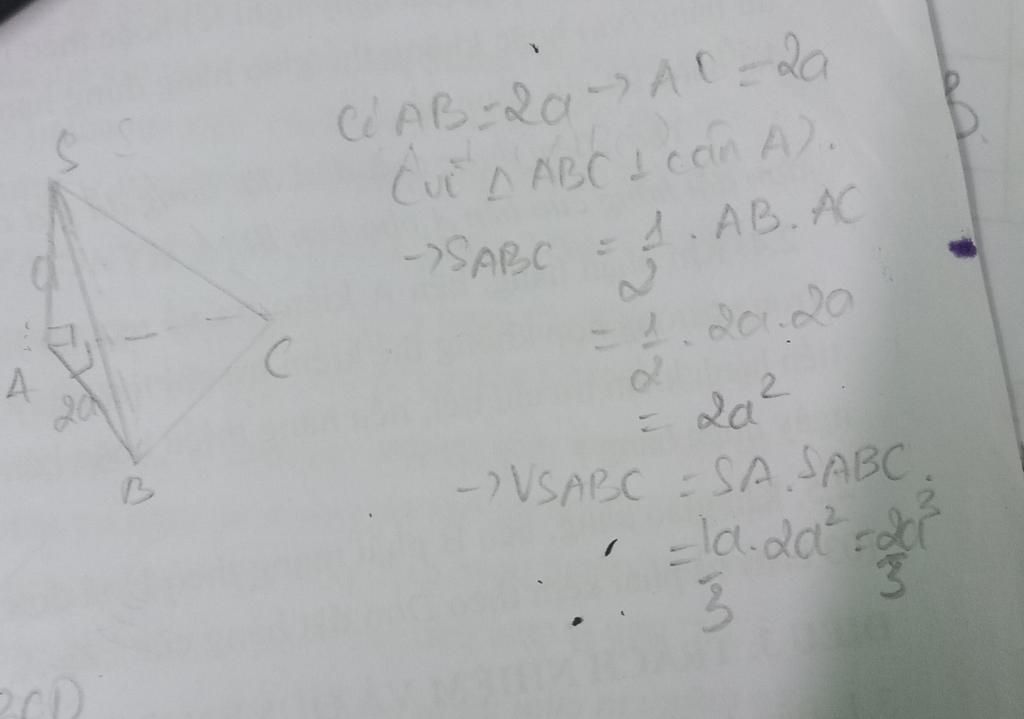 S
a
A
2a
B
C
Có AB = 2a → AC = 2a
(vì Δ ABC ⊥ cân A).
→ SABC = 1/2 . AB . AC
= 1/2 . 2a . 2a
= 2a²
→ VSABC = SA . SABC .
= 1/3 a . 2a² = 2a³/3
B.